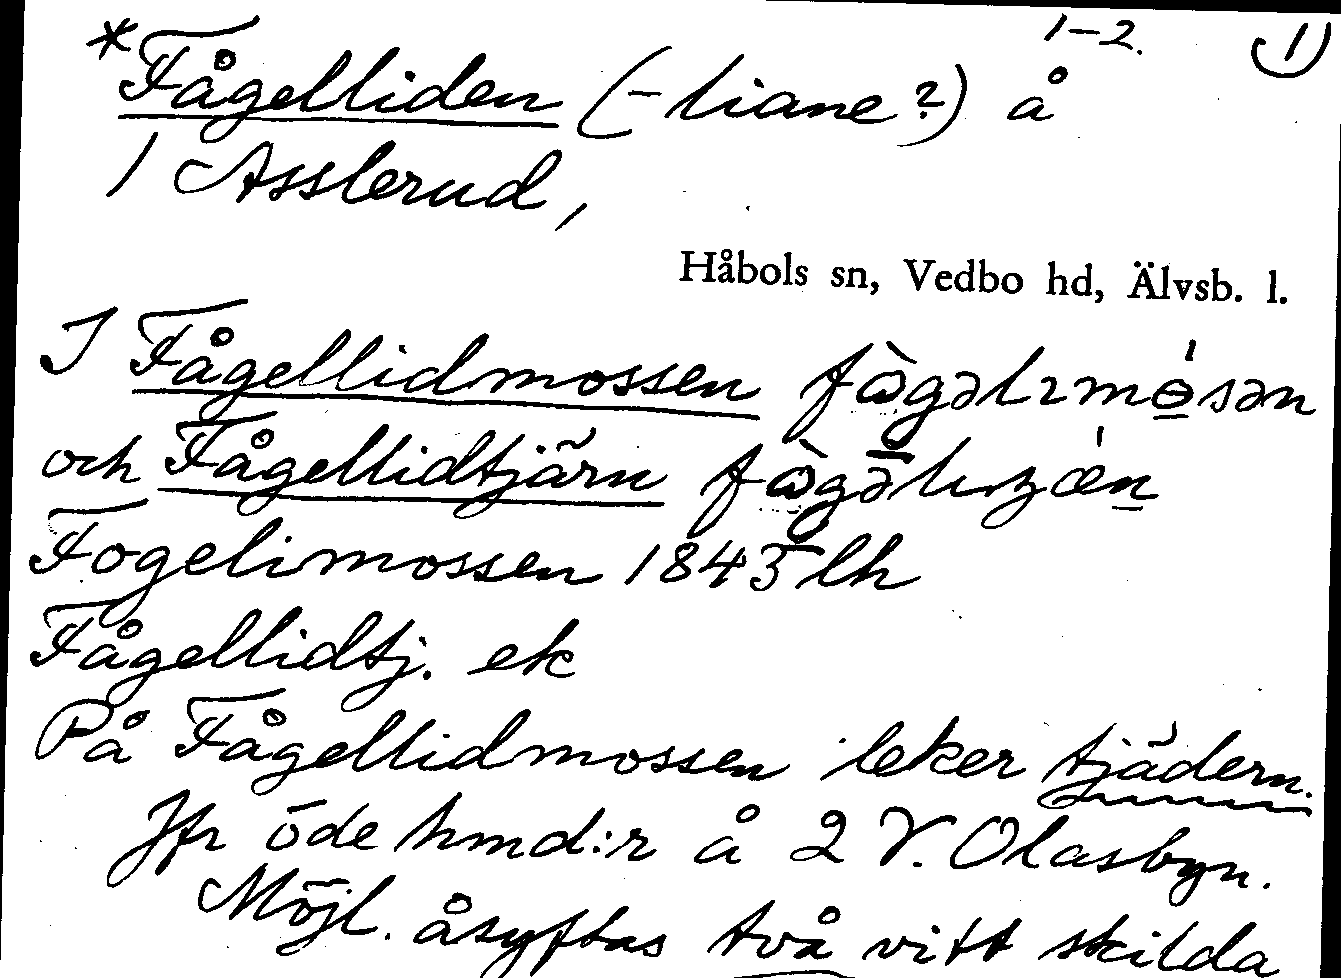 1-2. 1
*Fågelliden (-liane?) å
1 Asslerud,
Håbols sn, Vedbo hd, Älvsb. l.
I Fågellidmossen
och Fågellidtjärn
Fogelimossen 1843 lh
Fågellidtj. ek
På Fågellidmossen leker tjädern.
Jfr öde hmd:r å 2 V. Olasbyn.
Möjl. åsyftas två vitt skilda